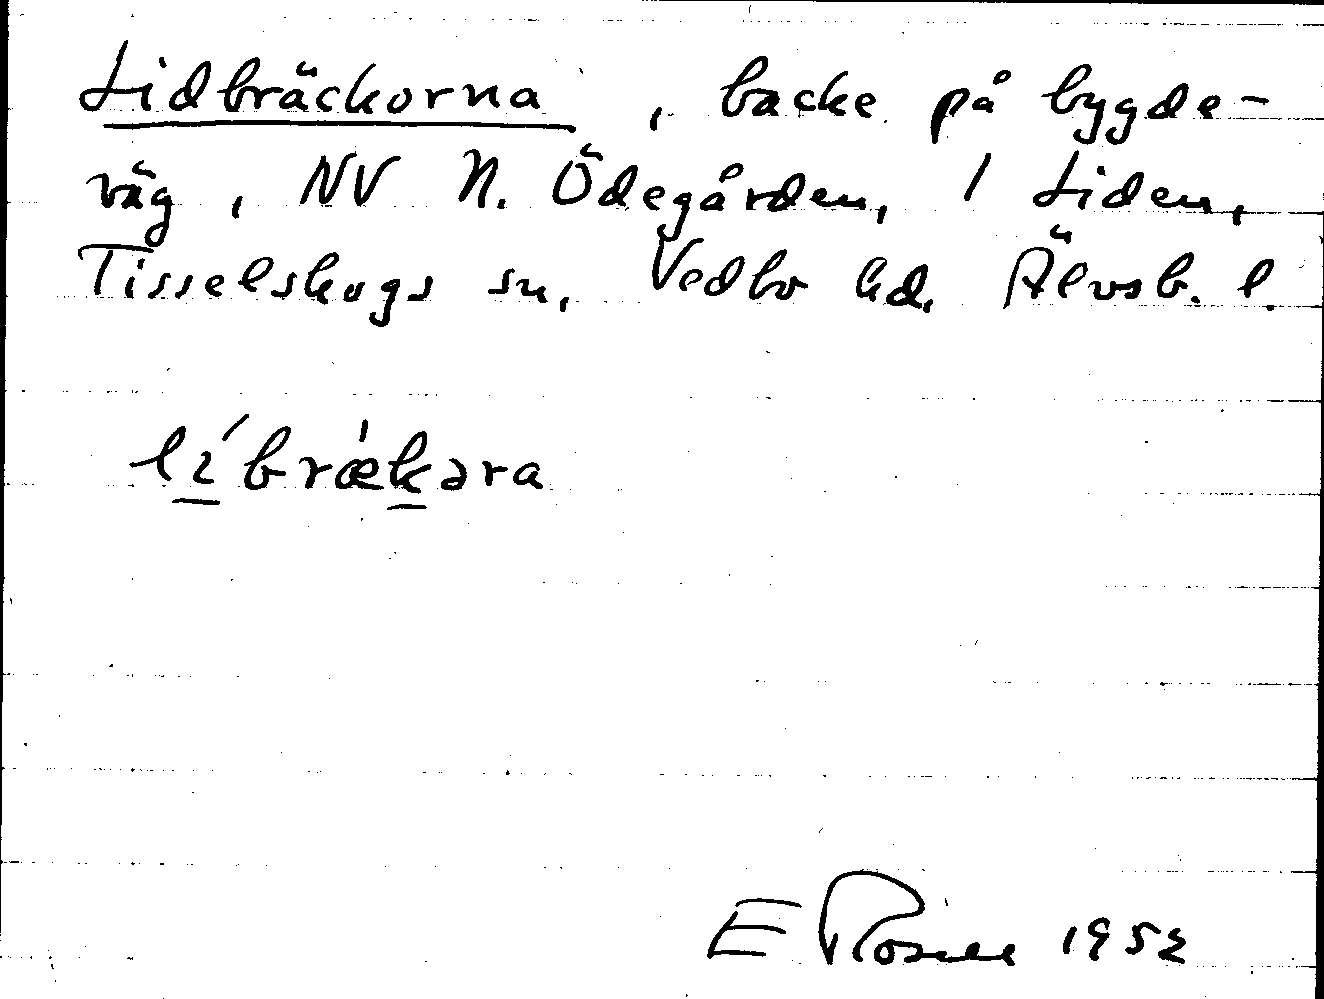 Lidbräckorna, backe på bygde-
väg, NV N. Ödegården, 1 Liden,
Tisselskogs sn, Vedbo hd, Älvsb. l.
lı́bræ̀kəra
E Rosell 1952